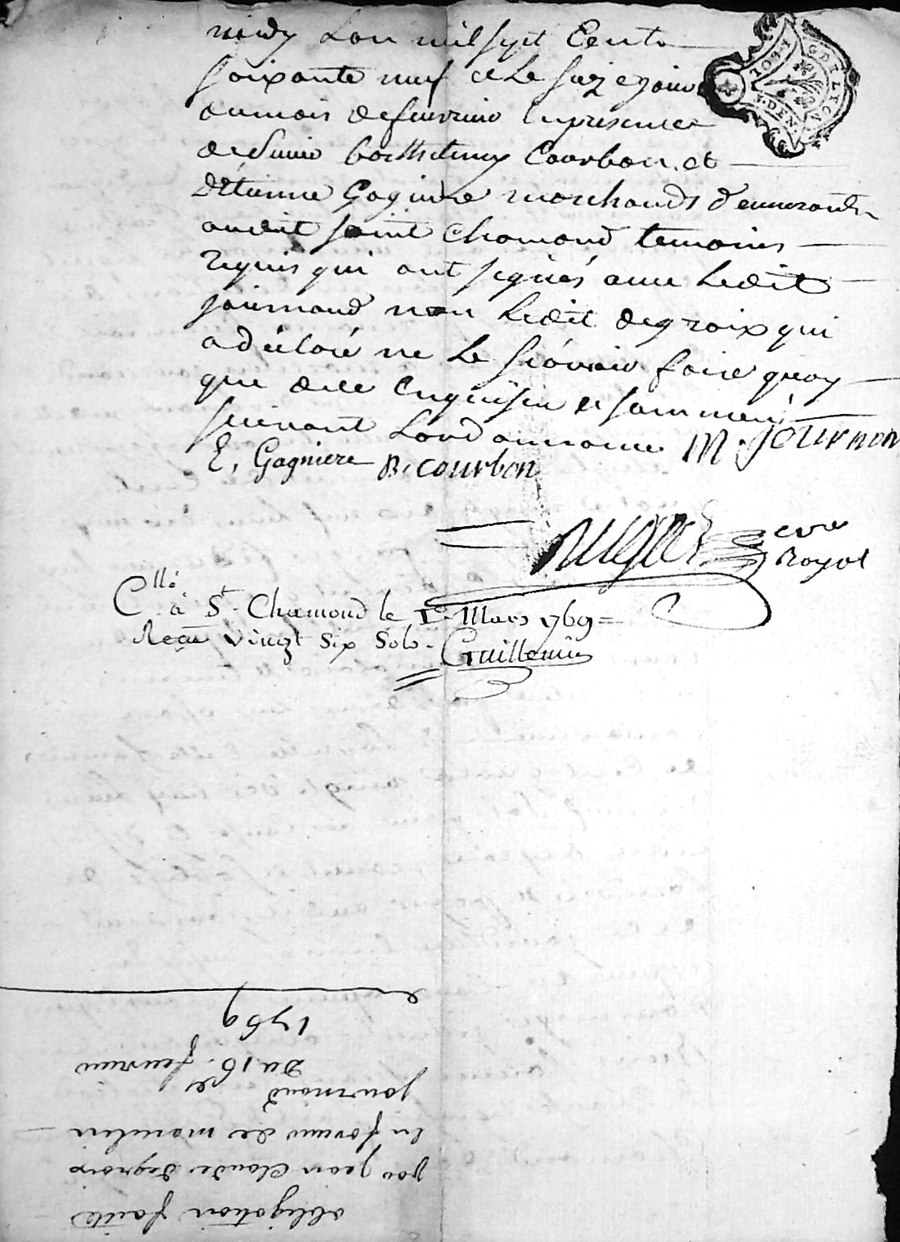 midy L'an mil sept Cents
soixante neuf et Le seizе jour
du mois de fevrier En presence
de Sieur barthelemy Courbon, et
d'Etienne Gagniere marchands demeurants
audit saint chamond temoins
requis qui ont signés avec Ledit
journoud non Ledit degraix qui
a déclaré ne Le sçavoir faire quoy
que de ce enquis et sommé
suivant Lordonnance M. JOURNON
E, Gagniere B. Courbon
nore
Royal
Cllé à St. Chamond le 1er Mars 1769=
Reçu vingt six sols. Guillemin
G D E LYON
I. DEN.
obligation faitte
par jean Claude degraix
En faveur de marcelin
journoud
Du 16e. fevrier
1769